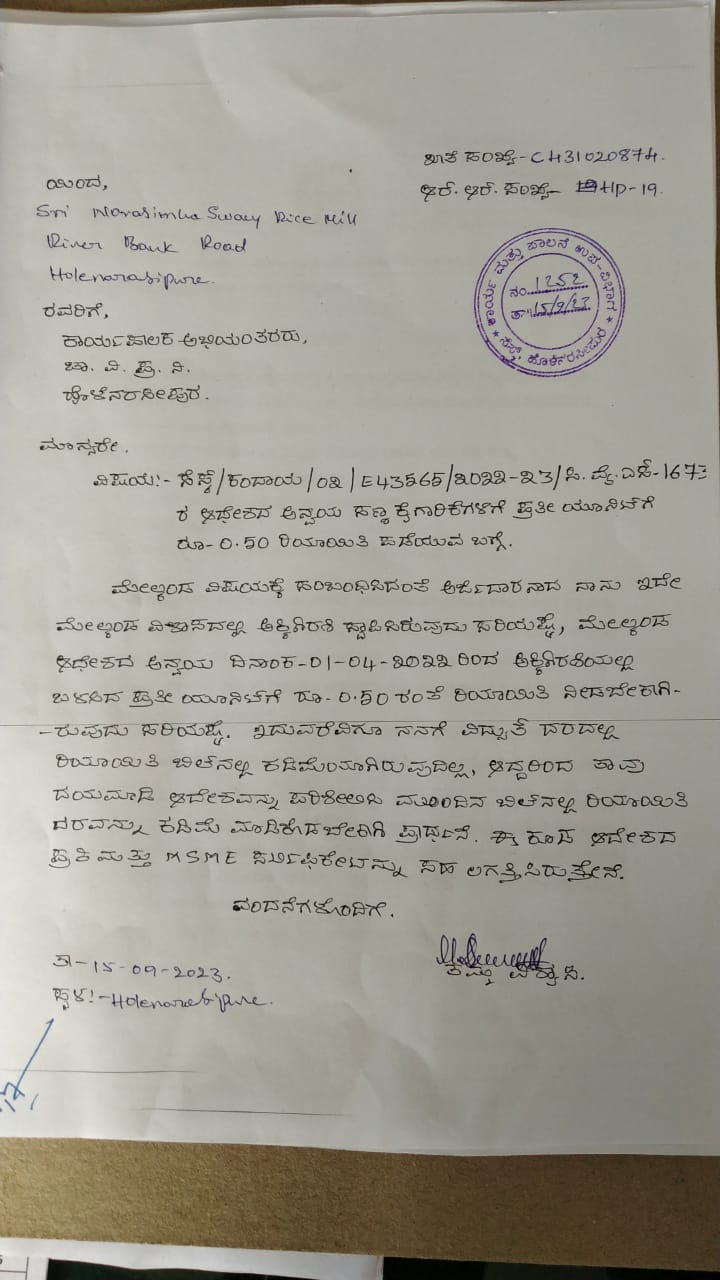 ಖಾತೆ ಸಂಖ್ಯೆ-C431020874.
ಆರ್. ಆರ್. ಸಂಖ್ಯೆ- HP-19.
ಯಿಂದ,
Sri Narasimha Swamy Rice Mill
River Bank Road
Holenarasipura.
ಕಾರ್ಯ ಮತ್ತು ಪಾಲನೆ ಉಪ-ವಿಭಾಗ
ನಂ. 1252
ತಾ: 15/9/23
ಸೆಸ್ಕ್, ಹೊಳೆನರಸೀಪುರ
ರವರಿಗೆ,
ಕಾರ್ಯಪಾಲಕ ಅಭಿಯಂತರರು,
ಚಾ. ವಿ. ಪ್ರ. ನಿ.
ಹೊಳೆನರಸೀಪುರ.
ಮಾನ್ಯರೇ.
ವಿಷಯ:- ಸೆಸ್ಕ್/ಕಂದಾಯ/02/E43565/2022-23/ಸಿ.ವೈ.ಎಸ್-1673
ರ ಆಧೇಶದ ಅನ್ವಯ ಸಣ್ಣ ಕೈಗಾರಿಕೆಗಳಿಗೆ ಪ್ರತೀ ಯೂನಿಟ್‌ಗೆ
ರೂ-0.50 ರಿಯಾಯಿತಿ ಪಡೆಯುವ ಬಗ್ಗೆ.
ಮೇಲ್ಕಂಡ ವಿಷಯಕ್ಕೆ ಸಂಬಂಧಿಸಿದಂತೆ ಅರ್ಜಿದಾರನಾದ ನಾನು ಇದೇ
ಮೇಲ್ಕಂಡ ವಿಳಾಸದಲ್ಲಿ ಅಕ್ಕಿಗಿರಣಿ ಸ್ಥಾಪಿಸಿರುವುದು ಸರಿಯಷ್ಟೆ, ಮೇಲ್ಕಂಡ
ಆಧೇಶದ ಅನ್ವಯ ದಿನಾಂಕ-01-04-2022 ರಿಂದ ಅಕ್ಕಿಗಿರಣಿಯಲ್ಲಿ
ಬಳಸಿದ ಪ್ರತೀ ಯೂನಿಟ್‌ಗೆ ರೂ-0.50 ರಂತೆ ರಿಯಾಯಿತಿ ನೀಡಬೇಕಾಗಿ-
-ರುವುದು ಸರಿಯಷ್ಟೆ. ಇದುವರೆವಿಗೂ ನನಗೆ ವಿದ್ಯುತ್ ದರದಲ್ಲಿ
ರಿಯಾಯಿತಿ ಬಿಲ್‌ನಲ್ಲಿ ಕಡಿಮೆಯಾಗಿರುವುದಿಲ್ಲ, ಆದ್ದರಿಂದ ತಾವು
ದಯಮಾಡಿ ಆದೇಶವನ್ನು ಪರಿಶೀಲಿಸಿ ಮುಂದಿನ ಬಿಲ್‌ನಲ್ಲಿ ರಿಯಾಯಿತಿ
ದರವನ್ನು ಕಡಿಮೆ ಮಾಡಿಕೊಡಬೇಕಾಗಿ ಪ್ರಾರ್ಥನೆ. ಈ ಕೂಡ ಆದೇಶದ
ಪ್ರತಿ ಮತ್ತು MSME ಸರ್ಟಿಫಿಕೇಟನ್ನು ಸಹ ಲಗತ್ತಿಸಿರುತ್ತೇನೆ.
ವಂದನೆಗಳೊಂದಿಗೆ.
ತಾ-15-09-2023.
ತಮ್ಮ ವಿಶ್ವಾಸಿ.
ಸ್ಥಳ:-Holenarasipura.